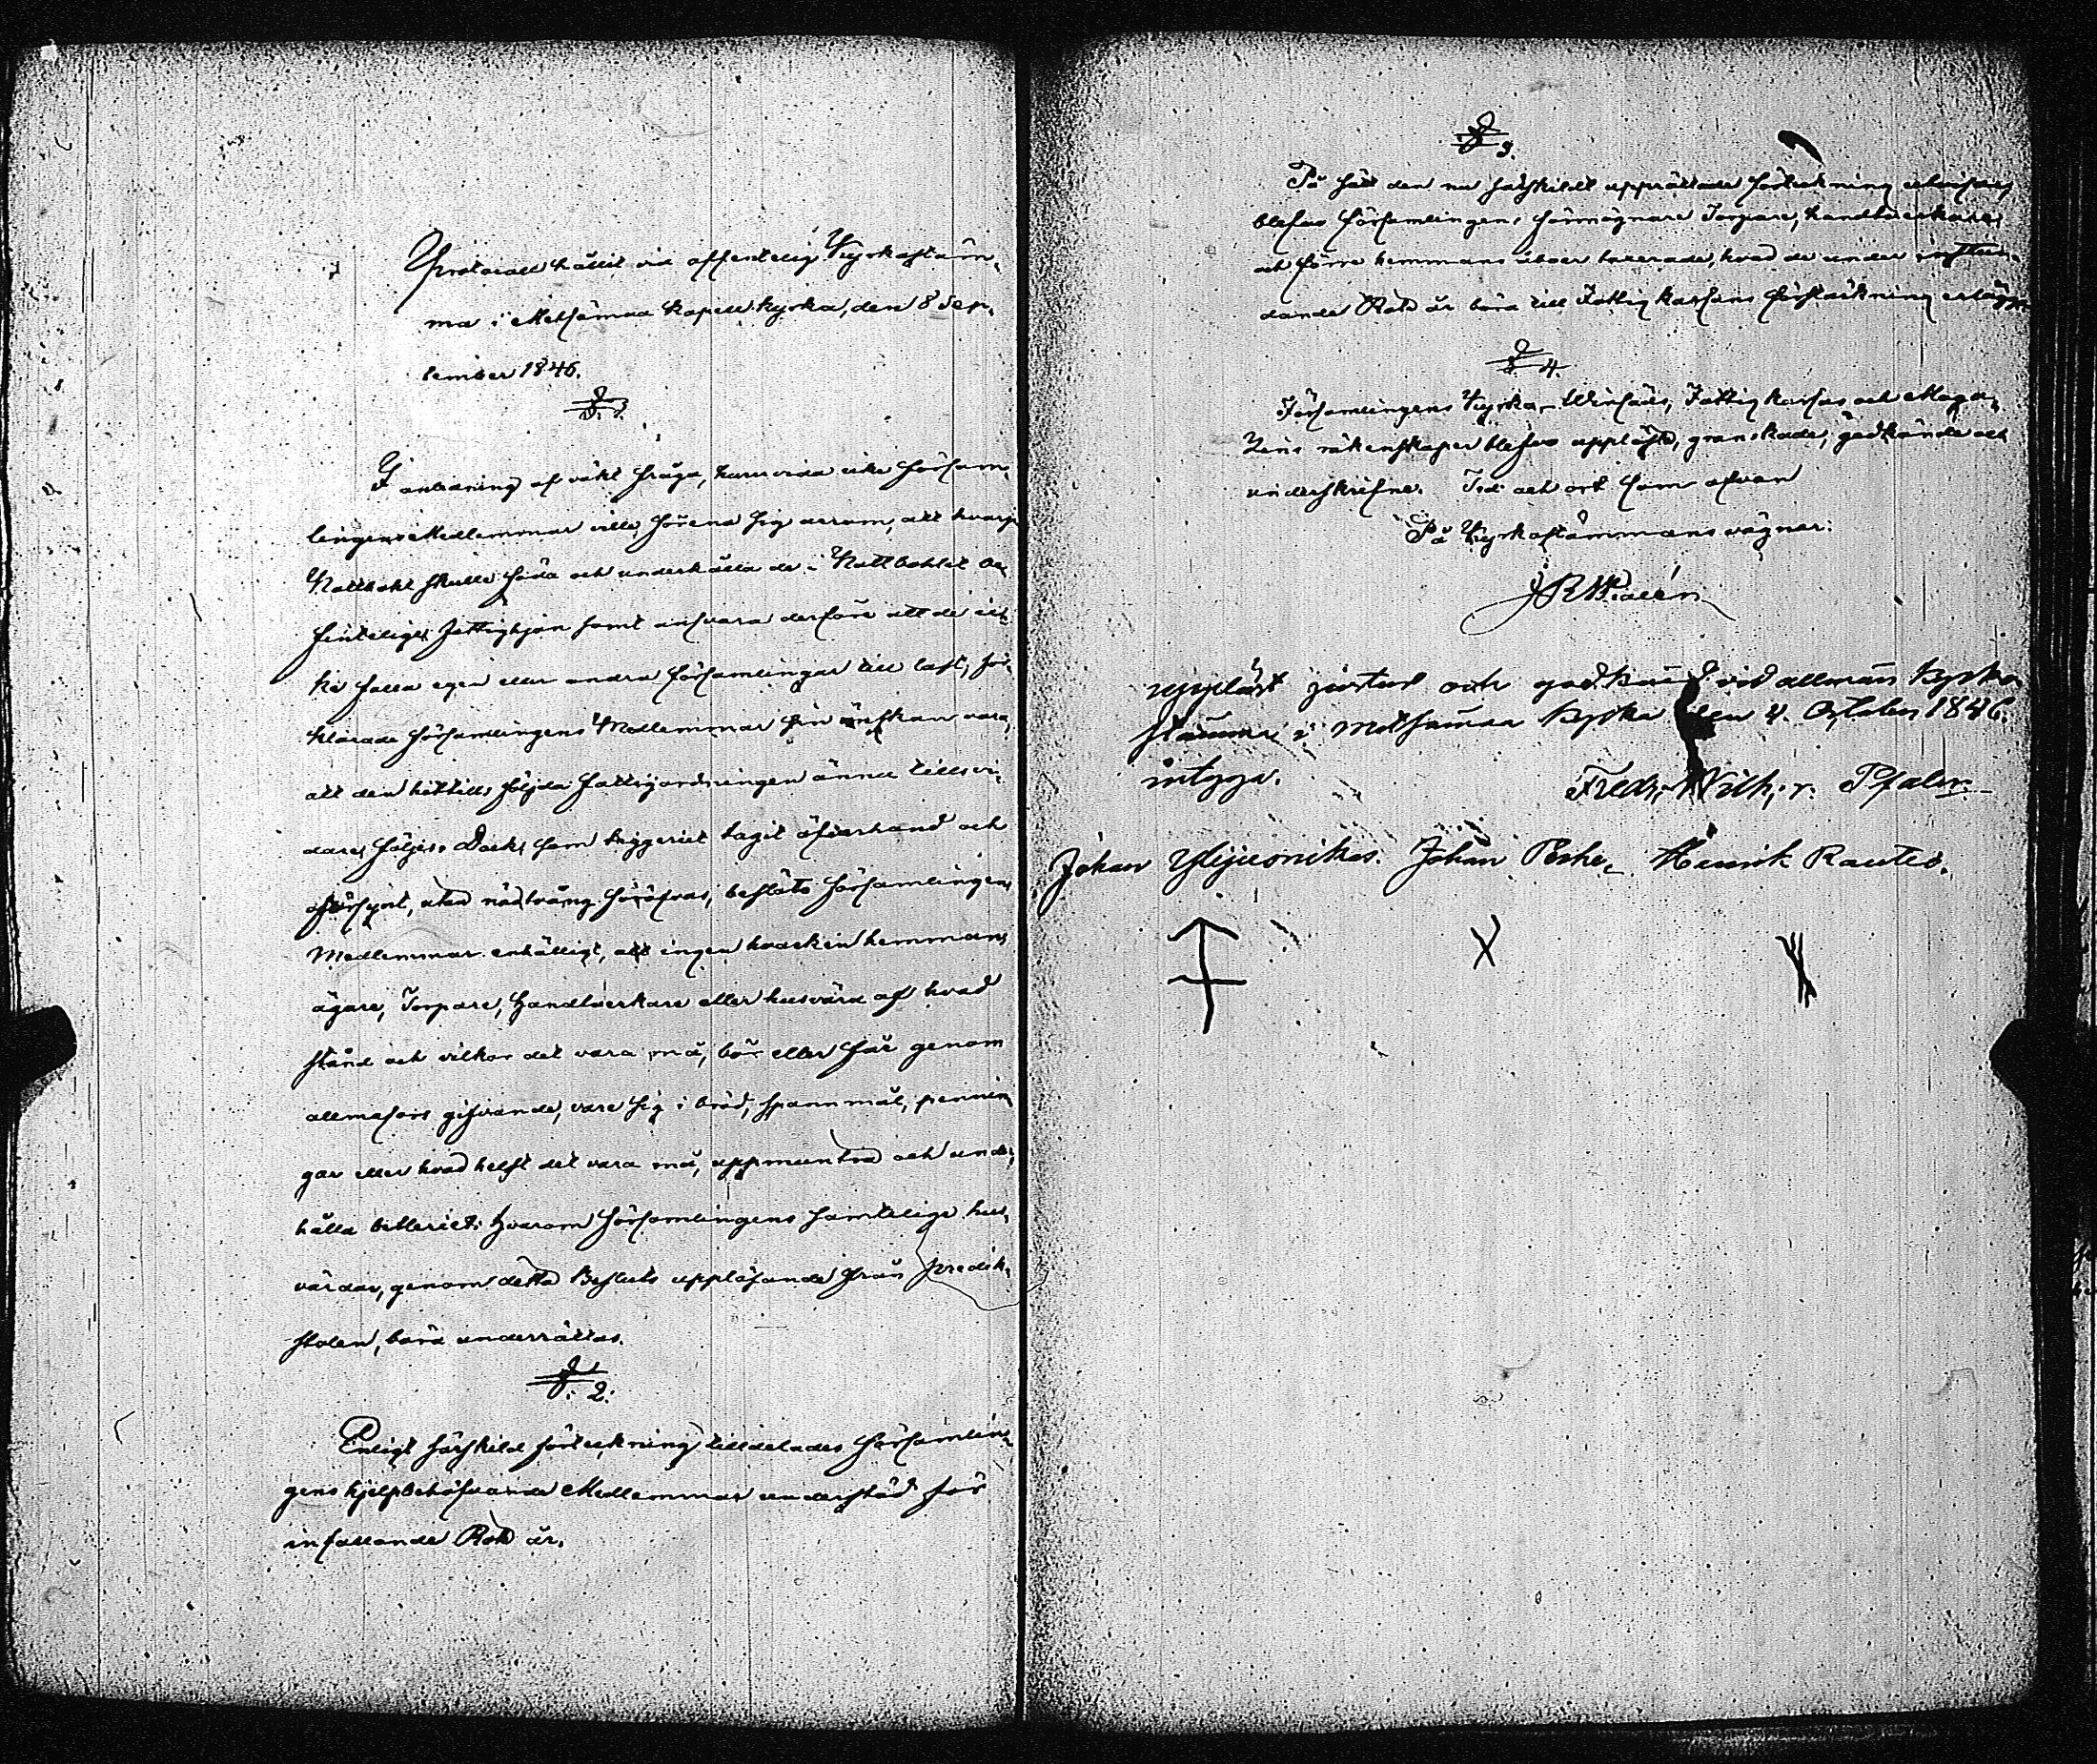 Protocoll hållit vid offentelig Kyrkostäm-
ma i Metsämaa Kapell kyrka, den 8 Sep-
tember 1846.
§. 1.
I anledning af väkt fråga, huruvida icke försam-
lingens Medlemmar ville förena sig derom, att hvarje
Rotebohl skulle föda och underhålla de i Rottbohlet be-
finteliga Fattighjon samt ansvara derföre att de ick-
ke falla egen eller andra församlingar till last, för-
klarade församlingens Medlemmar sin önskan vara,
att den hittills följda fattigordningen ännu tillsvi-
dare följes. Dock, som tiggeriet tagit öfverhand och
oförsynt, utan nödtvång föröfvas, beslöts församlingens
Medlemmar enhälligt, att ingen hvarken hemmans
ägare, Torpare, Handtverkare eller husvärd af hvad
stånd och vilkor det vara må, bör eller får genom
allmosors gifvande, vare sig i bröd, spannmål, pennin-
gar eller hvad helst det vara må, uppmuntra och under-
hålla betleriet. Hvarom församlingens samtelige hus-
värdar, genom detta Besluts uppläsande från predik-
stolen, böra underrättas.
§. 2.
Enligt särskild förteckning tilldelades församlin-
gens hjelpbehöfvande Medlemmar understöd för
infallande Rote år.
§ 3.
På sätt den nu särskildt upprättade förteckning utvisar,
blefvo församlingens förmögnare Torpare, handtverkare
och förre hemmans åboer taxerade, hvad de under instun-
dande Rote år böra till Fattig kassans förstärkning erlägga
§ 4.
Församlingens Kyrko-, Winkäls, Fattig kassas och Maga-
zins räkenskaper blefvo uppläste, granskade, godkände och
underskrifne. Tid och ort som ofvan
På Kyrkostämmans vägnar:
J R Widén
upplast justerat och godkänd vid allmän Kyrko
stämma i Metsämaa Kyrka den 4. October 1846.
intyga. Fredr. Wilh: r. Pfaler.
Johan Ylijuonikas. Johan Peske, Henrik Rautio.